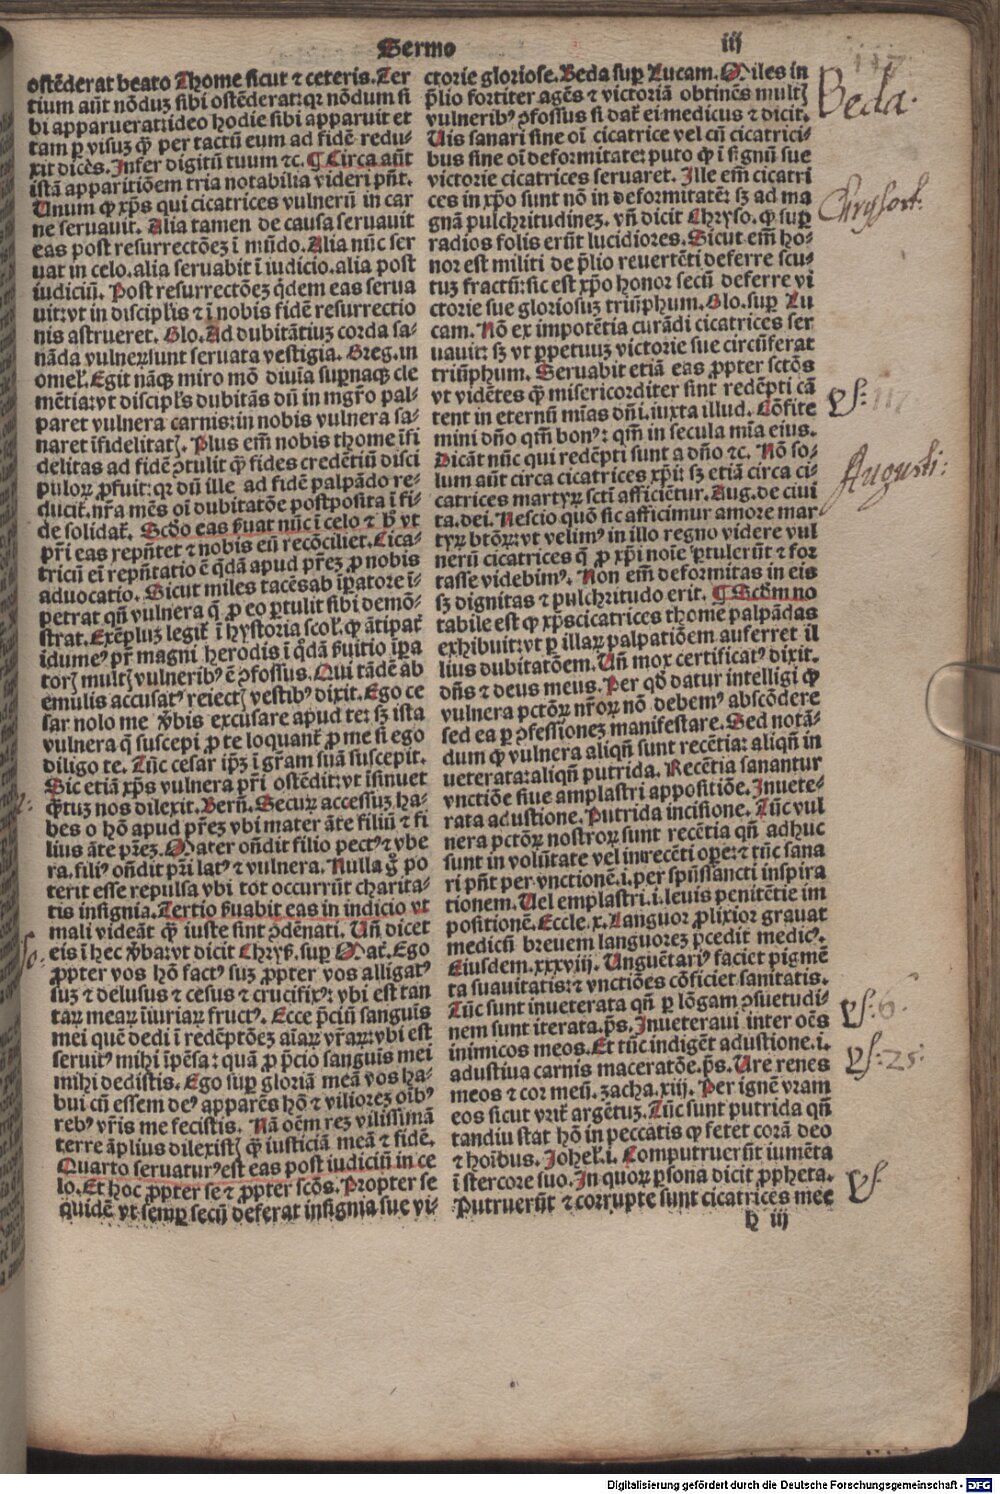 Sermo iij
ostēderat beato Thome sicut ⁊ ceteris. Ter
tium aūt nōduʒ sibi ostēderat: qꝛ nōdum si
bi apparuerat: ideo hodie sibi apparuit et
tam ꝑ visuʒ ꝙ̄ per tactū eum ad fidē redu-
xit dicēs. Infer digitū tuum ⁊c. ¶ Circa aūt
istā apparitiōem tria notabilia videri pn̄t.
Unum ꝙ xp̄s qui cicatrices vulnerū in car
ne seruauit. Alia tamen de causa seruauit
eas post resurrectōeʒ ī mūdo. Alia nūc ser
uat in celo. alia seruabit ī iudicio. alia post
iudiciū. Post resurrectōeʒ q̇dem eas serua
uit: vt in discipl'is ⁊ ī nobis fidē resurrectio
nis astrueret. Glo. Ad dubitātiuʒ corda sa-
nāda vulnerꝝ sunt seruata vestigia. Greg. in
omel'. Egit nāqʒ miro mō diuīa supnaqʒ cle
mētia: vt discipl's dubitās dū in mgr̄o pal-
paret vulnera carnis: in nobis vulnera sa-
naret īfidelitatꝭ. Plus em̄ nobis thome īfi
delitas ad fidē ꝓtulit ꝙ̄ fides credētiū disci
puloꝝ ꝓfuit: qꝛ dū ille ad fidē palpādo re-
ducit̄. nr̄a mēs oī dubitatōe postposita ī fi-
de solidat̄. Scd̓o eas ẜuat nūc ī celo ⁊ ḣ vt
pr̄i eas rep̄ntet ⁊ nobis eū recōciliet. Cica-
tricū em̄ rep̄ntatio ē q̇dā apud pr̄eʒ ꝓ nobis
aduocatio. Sicut miles tacēs ab īpatore ī-
petrat qn̄ vulnera q̄ ꝓ eo ꝑtulit sibi demō-
strat. Exēpluʒ legit̄ ī hystoria scol'. ꝙ ātipat̄
idumeꝰ pr̄ magni herodis ī q̇dā ẜuitio īpa
torꝭ multꝭ vulneribꝰ ē ꝯfossus. Qui tādē ab
emulis accusatꝰ reiectꝭ vestibꝰ dixit. Ego ce
sar nolo me v̓bis excusare apud te: sʒ ista
vulnera q̄ suscepi ꝓ te loquant̄ ꝓ me si ego
diligo te. Tūc cesar ip̄ʒ ī gr̄am suā suscepit.
Sic etiā xp̄s vulnera pr̄i ostēdit: vt īsinuet
ꝙ̄tuʒ nos dilexit. Bern̄. Securꝝ accessuʒ ha-
bes o hō apud pr̄eʒ vbi mater āte filiū ⁊ fi
lius āte pr̄eʒ. Mater on̄dit filio pectꝰ ⁊ vbe
ra. filiꝰ on̄dit pr̄i latꝰ ⁊ vulnera. Nulla g̊ po
terit esse repulsa vbi tot occurrūt charita-
tis insignia. Tertio ẜuabit eas in indicio vt
mali videāt ꝙ̄ iuste sint ꝯdēnati. Un̄ dicet
eis ī hec v̓ba: vt dicit Chryẜ. sup Mat̄. Ego
ꝓpter vos hō factꝰ suʒ ꝓpter vos alligatꝰ
suʒ ⁊ delusus ⁊ cesus ⁊ crucifixꝰ: vbi est tan
taꝝ meaꝝ īiuriaꝝ fructꝰ. Ecce p̄ciū sanguis
mei quē dedi ī redēptōeʒ aīaꝝ vr̄aꝝ: vbi est
seruitꝰ mihi īpēsa: quā ꝓ p̄cio sanguis mei
mihi dedistis. Ego sup gloriā meā vos ha-
bui cū essem deꝰ apparēs hō ⁊ vilioreʒ oībꝰ
rebꝰ vr̄is me fecistis. Nā oēm reʒ vilissimā
terre āplius dilexistꝭ ꝙ̄ iusticiā meā ⁊ fidē.
Quarto seruaturꝰ est eas post iudiciū in ce
lo. Et hoc ꝓpter se ⁊ ꝓpter scōs. Propter se
quidē vt semꝑ secū deferat insignia sue vi-
ctorie gloriose. Beda sup Lucam. Miles in
p̄lio fortiter agēs ⁊ victoriā obtinēs multꝭ
vulneribꝰ ꝯfossus si dat̄ ei medicus ⁊ dicit.
Uis sanari sine oī cicatrice vel cū cicatrici-
bus sine oī deformitate: puto ꝙ ī signū sue
victorie cicatrices seruaret. Ille em̄ cicatri
ces in xp̄o sunt nō in deformitatē: sʒ ad ma
gnā pulchritudineʒ. vn̄ dicit Chryso. ꝙ sup
radios solis erūt lucidiores. Sicut em̄ ho-
nor est militi de p̄lio reuertēti deferre scu-
tuʒ fractū: sic est xp̄o honor secū deferre vi
ctorie sue gloriosuʒ triūphum. Glo. sup Lu
cam. Nō ex impotētia curādi cicatrices ser
uauit: sʒ vt ꝑpetuuʒ victorie sue circūferat
triūphum. Seruabit etiā eas ꝓpter sctōs
vt vidētes ꝙ̄ misericorditer sint redēpti cā
tent in eternū mīas dn̄i. iuxta illud. Cōfite
mini dn̄o qm̄ bonꝰ: qm̄ in secula mīa eius.
Dicāt nūc qui redēpti sunt a dn̄o ⁊c. Nō so-
lum aūt circa cicatrices xp̄i: sʒ etiā circa ci-
catrices martyꝝ scti afficiētur. Aug. de ciui
ta. dei. Nescio quō sic afficimur amore mar
tyꝝ btōꝝ: vt velimꝰ in illo regno videre vul
nerū cicatrices q̄ ꝓ xp̄i noīe ꝑtulerūt ⁊ for
tasse videbimꝰ. Non em̄ deformitas in eis
sʒ dignitas ⁊ pulchritudo erit. ¶ Scd̓m no
tabile est ꝙ xp̄s cicatrices thome palpādas
exhibuit: vt ꝑ illaꝝ palpatiōem auferret il
lius dubitatōem. Un̄ mox certificatꝰ dixit.
dn̄s ⁊ deus meus. Per qd̓ datur intelligi ꝙ
vulnera pctōꝝ nr̄oꝝ nō debemꝰ abscōdere
sed ea ꝑ ꝯfessioneʒ manifestare. Sed notā-
dum ꝙ vulnera aliqn̄ sunt recētia: aliqn̄ in
ueterata: aliqn̄ putrida. Recētia sanantur
vnctiōe siue amplastri appositiōe. Inuete-
rata adustione. Putrida incisione. Tūc vul
nera pctōꝝ nostroꝝ sunt recētia qn̄ adhuc
sunt in volūtate vel in recēti oꝑe: ⁊ tūc sana
ri pn̄t per vnctionē. i. per sp̄ussancti inspira
tionem. Uel emplastri. i. leuis penitētie im
positionē. Eccle. x. Languor ꝓlixior grauat
medicū breuem languoreʒ p̄cedit medicꝰ.
Eiusdem. xxxviij. Unguētariꝰ faciet pigmē
ta suauitatis: ⁊ vnctiōes cōficiet sanitatis.
Tūc sunt inueterata qn̄ ꝑ lōgam ꝯsuetudi-
nem sunt iterata. ps̄. Inueteraui inter oēs
inimicos meos. Et tūc indigēt adustione. i.
adustiua carnis maceratōe. ps̄. Ure renes
meos ⁊ cor meū. zacha. xiij. Per ignē vram
eos sicut vrit̄ argētuʒ. Tūc sunt putrida qn̄
tandiu stat hō in peccatis ꝙ fetet corā deo
⁊ hoībus. Johel'. i. Computruerūt iumēta
ī stercore suo. In quoꝝ ꝑsona dicit ꝓpheta.
Putruerūt ⁊ corrupte sunt cicatrices mee
h iij
117
Beda.
Chrysost.
ps: 117
Augusti:
ps: 6.
ps: 25.
ps
Digitalisierung gefördert durch die Deutsche Forschungsgemeinschaft - DFG